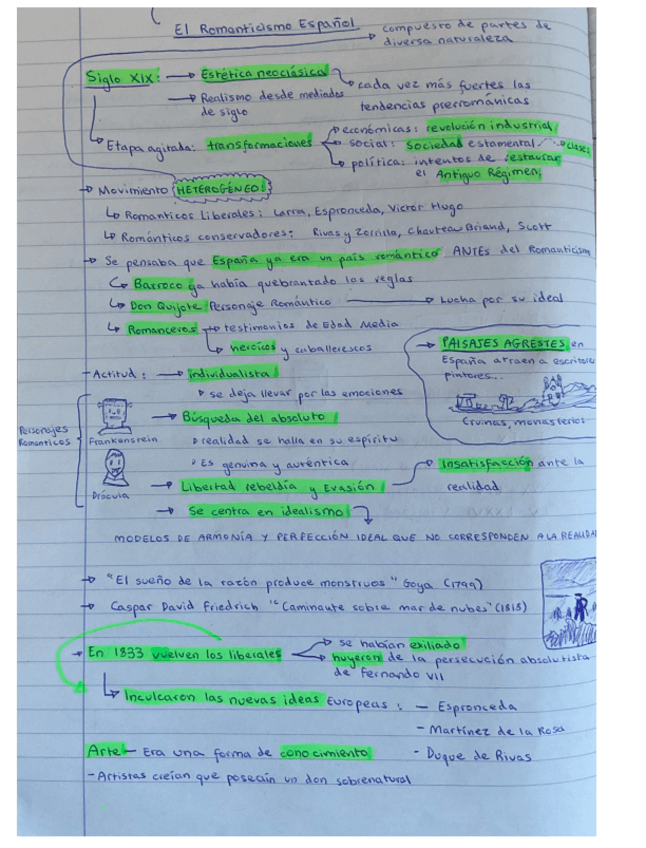 El Romanticismo Español
compuesto de partes de
diversa naturaleza
Siglo XIX: → Estética neoclásica
→ Realismo desde mediados
de siglo
cada vez más fuertes las
tendencias prerrománicas
Etapa agitada: transformaciones
económicas: revolución industrial
social: Sociedad estamental → clases
política: intentos de restaurar
el Antiguo Régimen
→ Movimiento HETEROGÉNEO:
↳ Romanticos Liberales: Larra, Espronceda, Victor Hugo
↳ Románticos conservadores: Rivas y Zorrilla, Chauteau Briand, Scott
→ Se pensaba que España ya era un país romántico ANTES del Romanticism
↳ Barroco ya había quebrantado las reglas
↳ Don Quijote: Personaje Romántico → Lucha por su ideal
↳ Romanceros → testimonios de Edad Media
↳ heroicos y caballerescos
→ PAISAJES AGRESTES en
España atraen a escritores
pintores...
Cruinas, monasterios
- Actitud: → individualista
se deja llevar por las emociones
Personajes
Romanticos
Frankenstein
Drácula
→ Búsqueda del absoluto
realidad se halla en su espíritu
Es genuina y auténtica
→ Libertad rebeldía y Evasión
→ Insatisfacción ante la
realidad
→ Se centra en idealismo
MODELOS DE ARMONÍA Y PERFECCIÓN IDEAL QUE NO CORRESPONDEN A LA REALIDAD
→ "El sueño de la razón produce monstruos" Goya (1799)
→ Caspar David Friedrich "Caminante sobre mar de nubes" (1818)
→ En 1833 vuelven los liberales
→ se habían exiliado
→ huyeron de la persecución absolutista
de Fernando VII
↳ Inculcaron las nuevas ideas Europeas: - Espronceda
- Martínez de la Rosa
- Duque de Rivas
Arte - Era una forma de conocimiento
- Artistas creían que poseían un don sobrenatural